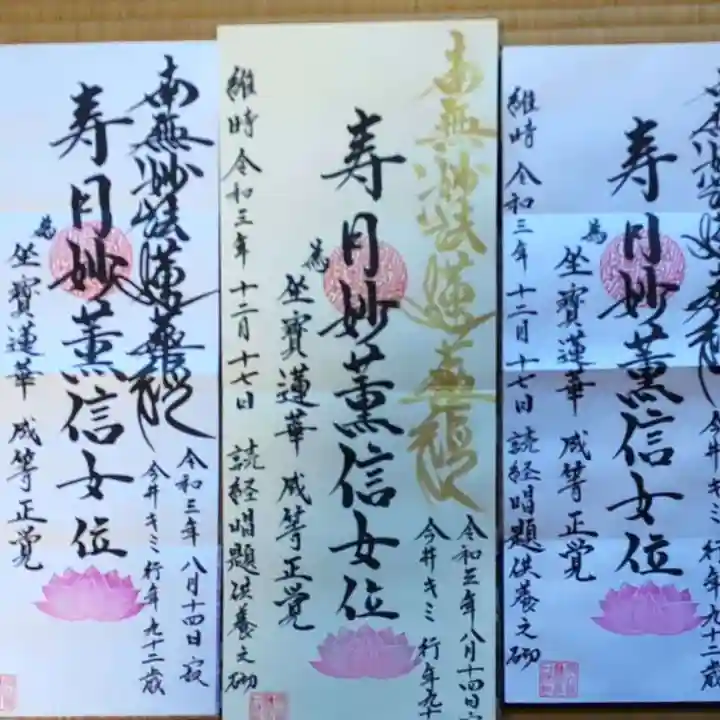 南無妙法蓮華経
令和三年 八月十四日寂
今井キミ 行年九十二歳
寿月妙薫信女位
為 坐寳蓮華 成等正覚
南無妙法蓮華経
令和三年八月十四日
今井キミ 行年九十
寿月妙薫信女位
為 坐寳蓮華 成等正覚
維時 令和三年 十二月十七日 読経唱題供養之砌
南無妙法蓮華
今井キミ 行年九十二歳
寿月妙薫信女位
為 坐寳蓮華 成等正覚
維時 令和三年 十二月十七日 読経唱題供養之砌